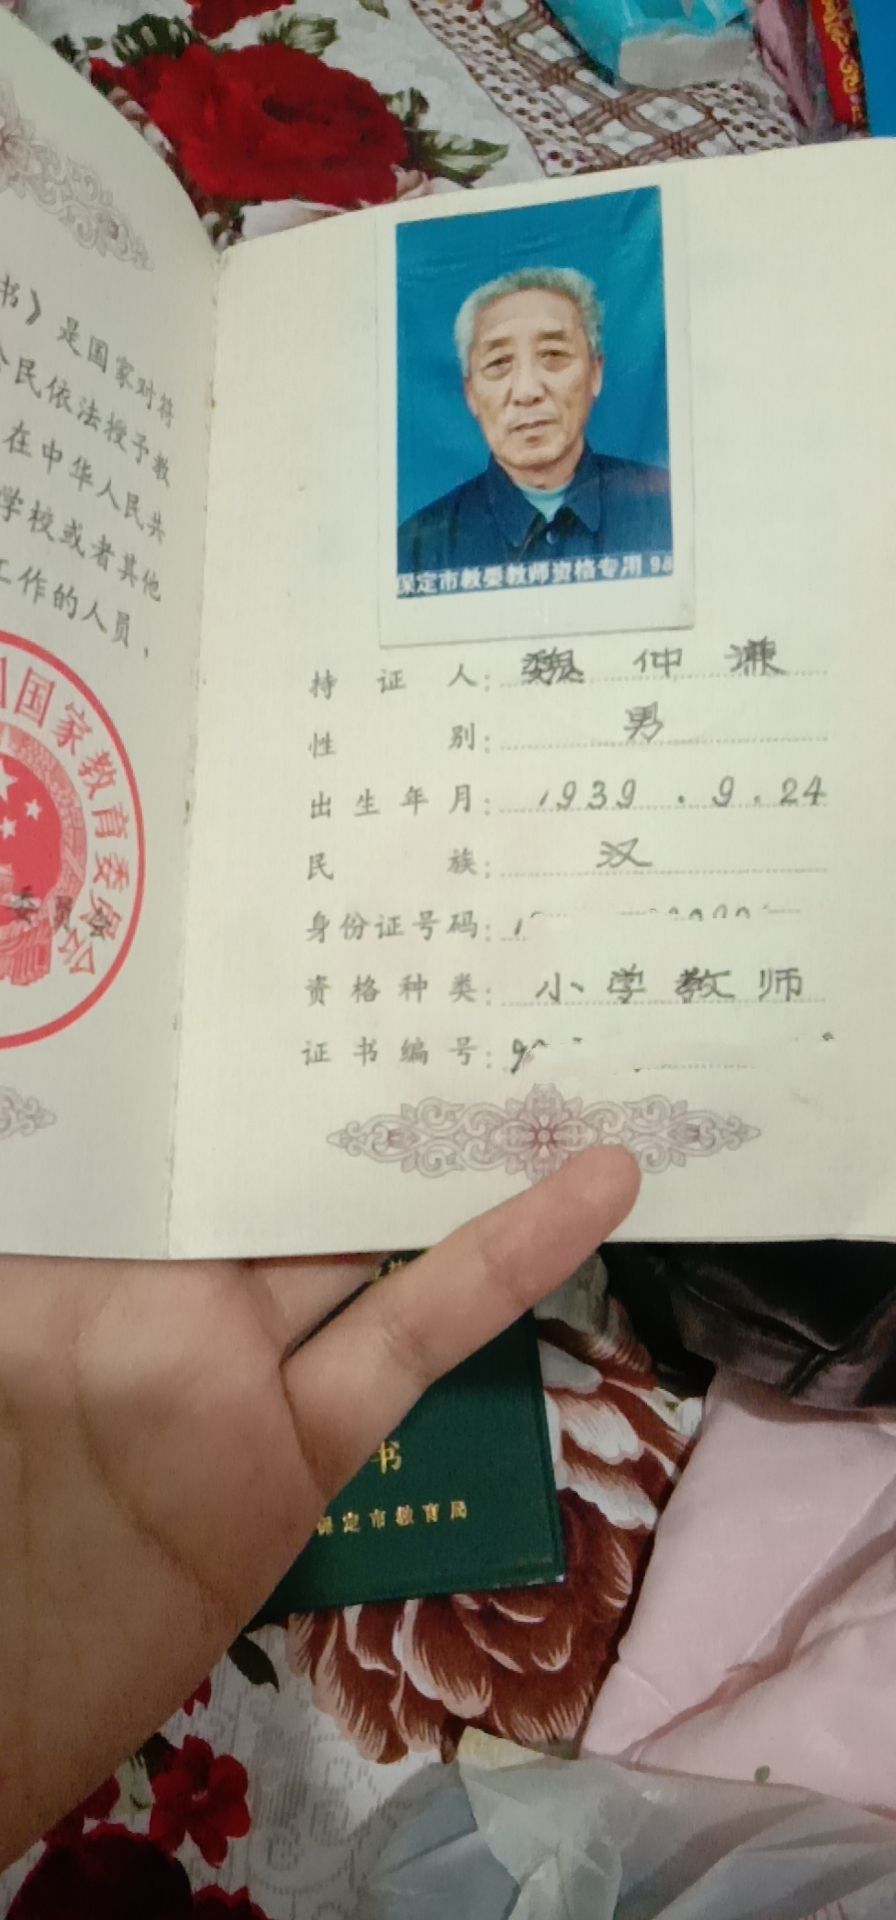 书》是国家对符
公民依法授予教
在中华人民共
学校或者其他
工作的人员，
国家教育委员会
委员会
保定市教委教师资格专用 98
持证人：魏仲谦
性别：男
出生年月：1939.9.24
民族：汉
身份证号码：
资格种类：小学教师
证书编号：
书
保定市教育局